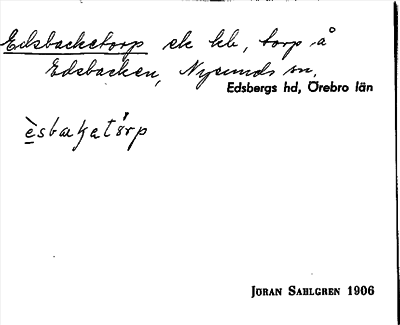 Edsbacketorp ek kb, torp å
Edsbacken, Nysunds sn.
Edsbergs hd, Örebro län
èsbakatårp
JÖRAN SAHLGREN 1906